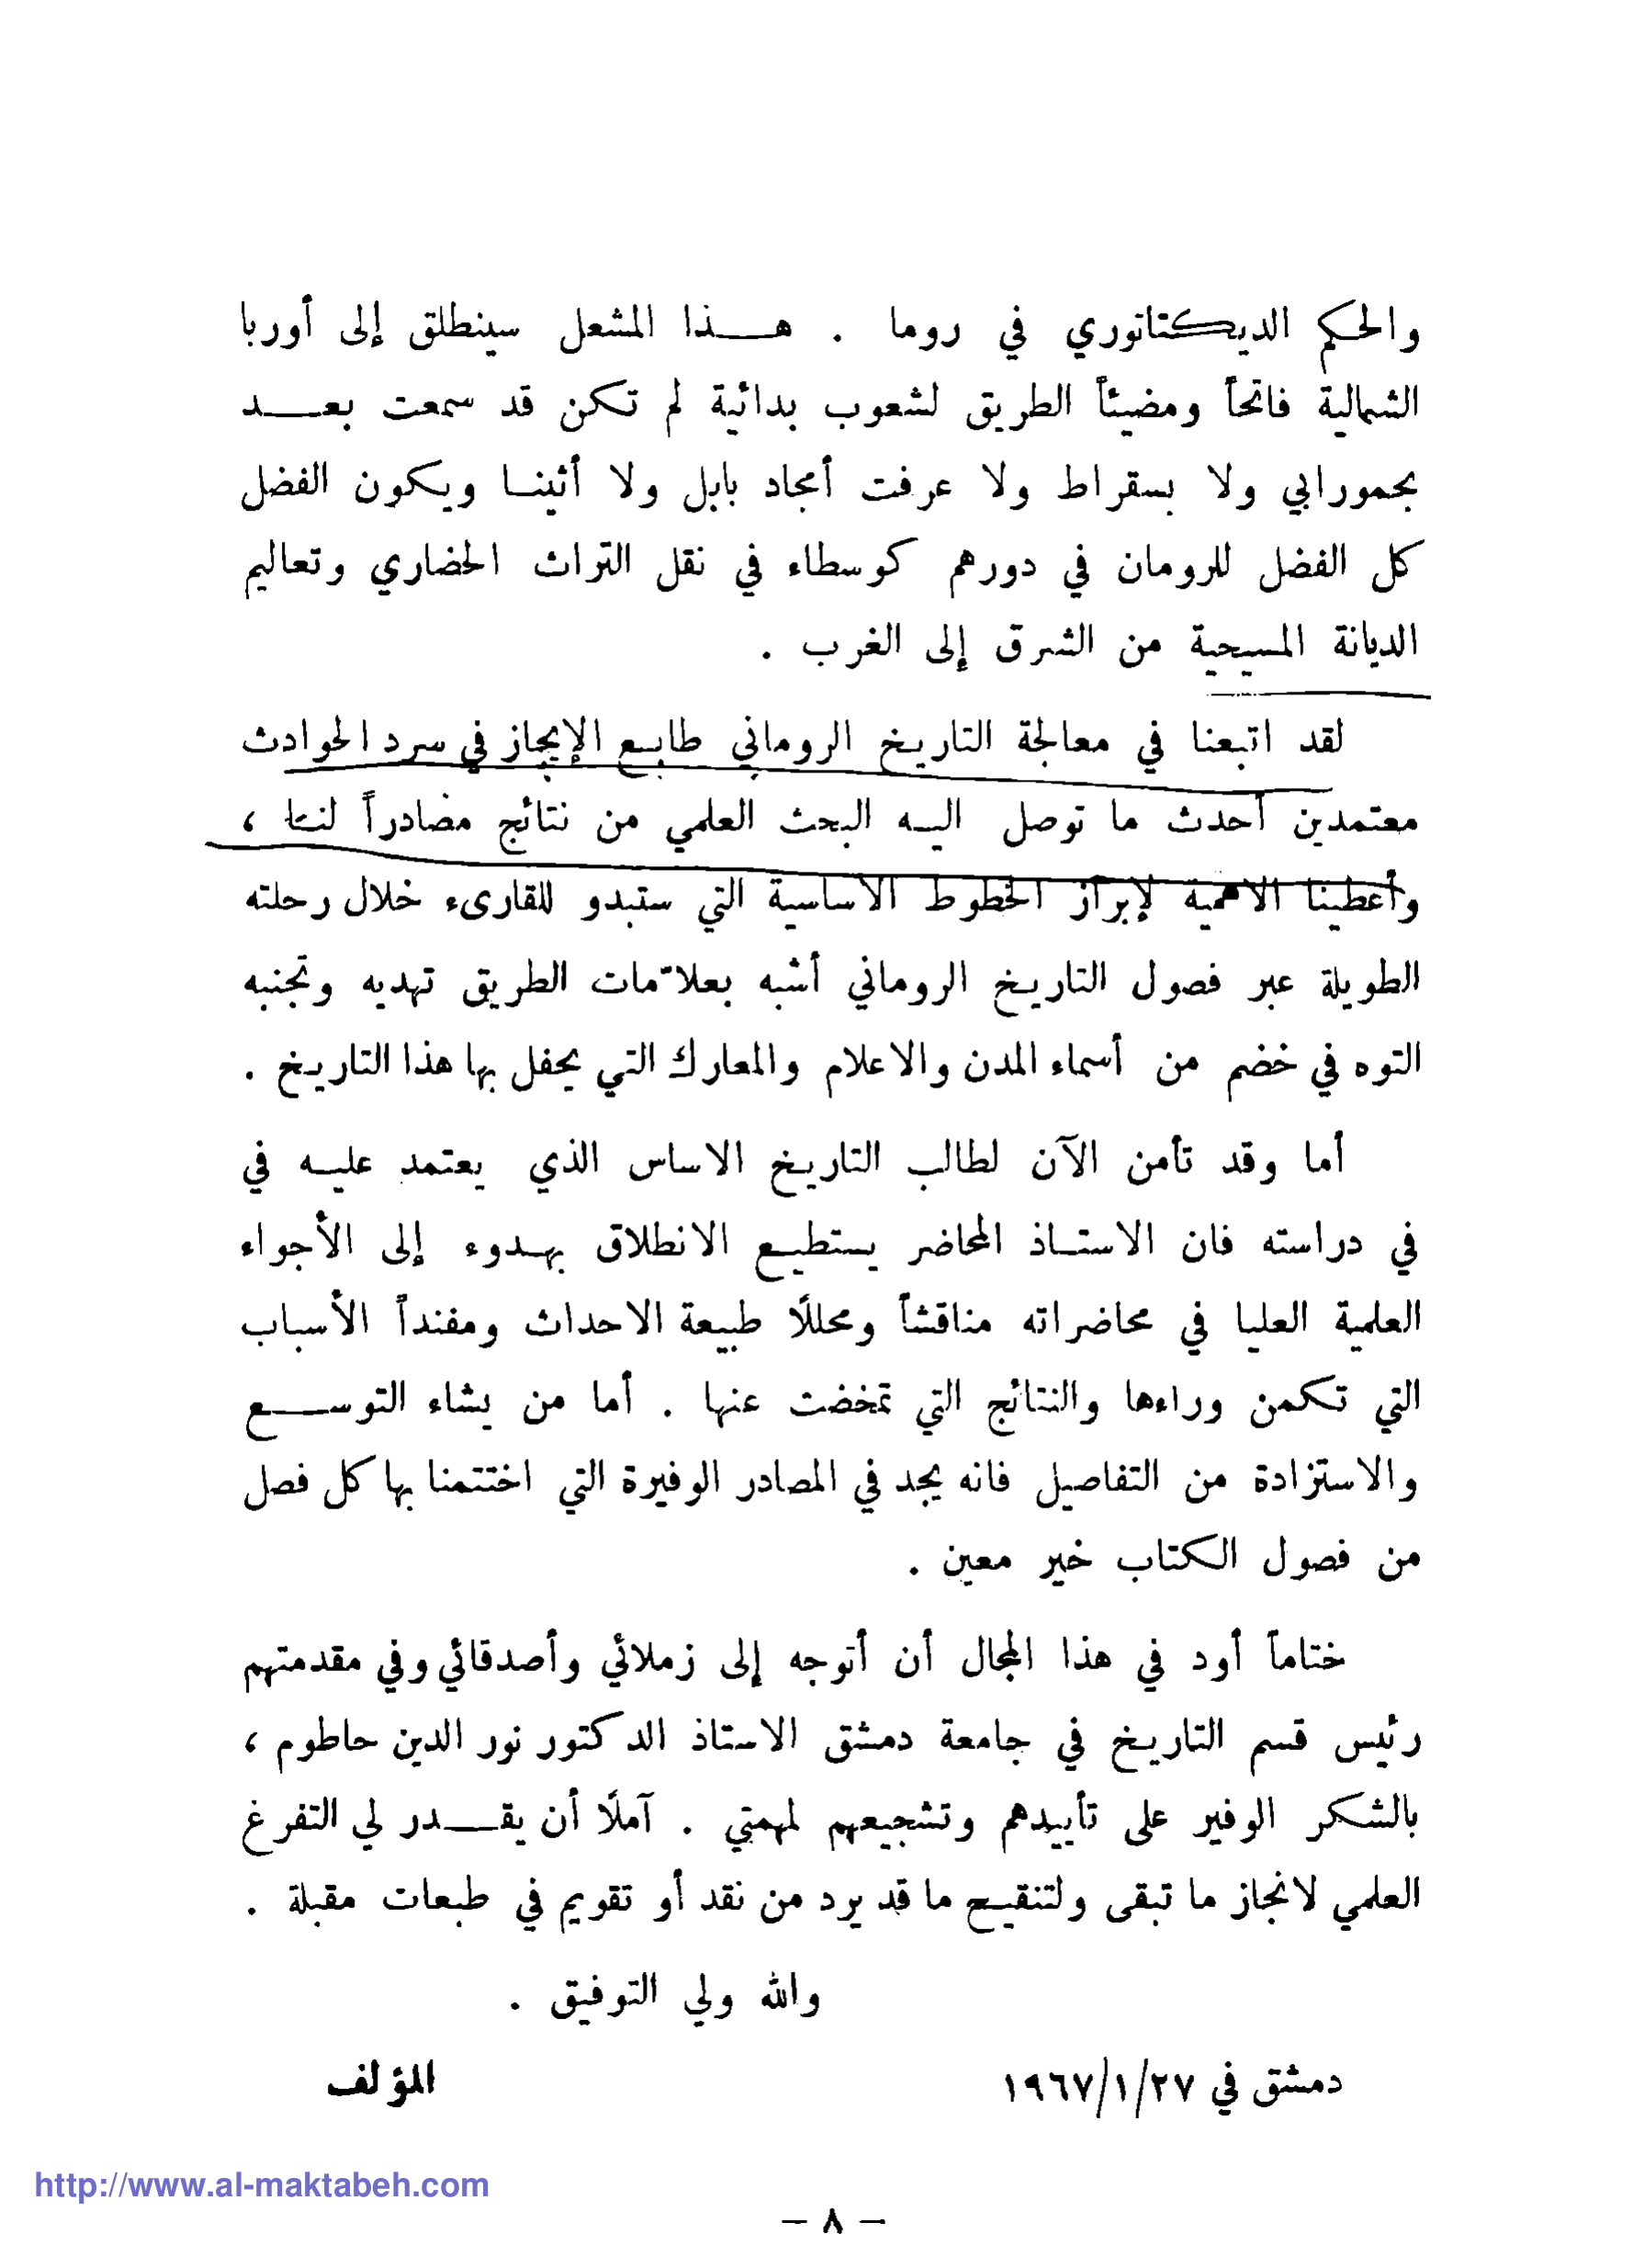 والحكم الديكتاتوري في روما . هذا المشعل سينطلق إلى أوربا
الشمالية فاتحاً ومضيئاً الطريق لشعوب بدائية لم تكن قد سمعت بعد
بحمورابي ولا بسقراط ولا عرفت أمجاد بابل ولا أثينا ويكون الفضل
كل الفضل للرومان في دورهم كوسطاء في نقل التراث الحضاري وتعاليم
الديانة المسيحية من الشرق إلى الغرب .
لقد اتبعنا في معالجة التاريخ الروماني طابع الإيجاز في سرد الحوادث
معتمدين أحدث ما توصل اليه البحث العلمي من نتائج مصادراً لنا ،
وأعطينا الاهمية لإبراز الخطوط الاساسية التي ستبدو للقارىء خلال رحلته
الطويلة عبر فصول التاريخ الروماني أشبه بعلاّمات الطريق تهديه وتجنبه
التوه في خضم من أسماء المدن والاعلام والمعارك التي يحفل بها هذا التاريخ .
أما وقد تأمن الآن لطالب التاريخ الاساس الذي يعتمد عليه في
في دراسته فان الاستاذ المحاضر يستطيع الانطلاق بهدوء إلى الأجواء
العلمية العليا في محاضراته مناقشاً ومحللًا طبيعة الاحداث ومفنداً الأسباب
التي تكمن وراءها والنتائج التي تمخضت عنها . أما من يشاء التوسع
والاستزادة من التفاصيل فانه يجد في المصادر الوفيرة التي اختتمنا بها كل فصل
من فصول الكتاب خير معين .
ختاماً أود في هذا المجال أن أتوجه إلى زملائي وأصدقائي وفي مقدمتهم
رئيس قسم التاريخ في جامعة دمشق الاستاذ الدكتور نور الدين حاطوم ،
بالشكر الوفير على تأييدهم وتشجيعهم لمهمتي . آملًا أن يقدر لي التفرغ
العلمي لانجاز ما تبقى ولتنقيح ما قد يرد من نقد أو تقويم في طبعات مقبلة .
والله ولي التوفيق .
دمشق في ٢٧/١/١٩٦٧ المؤلف
http://www.al-maktabeh.com
– ٨ –